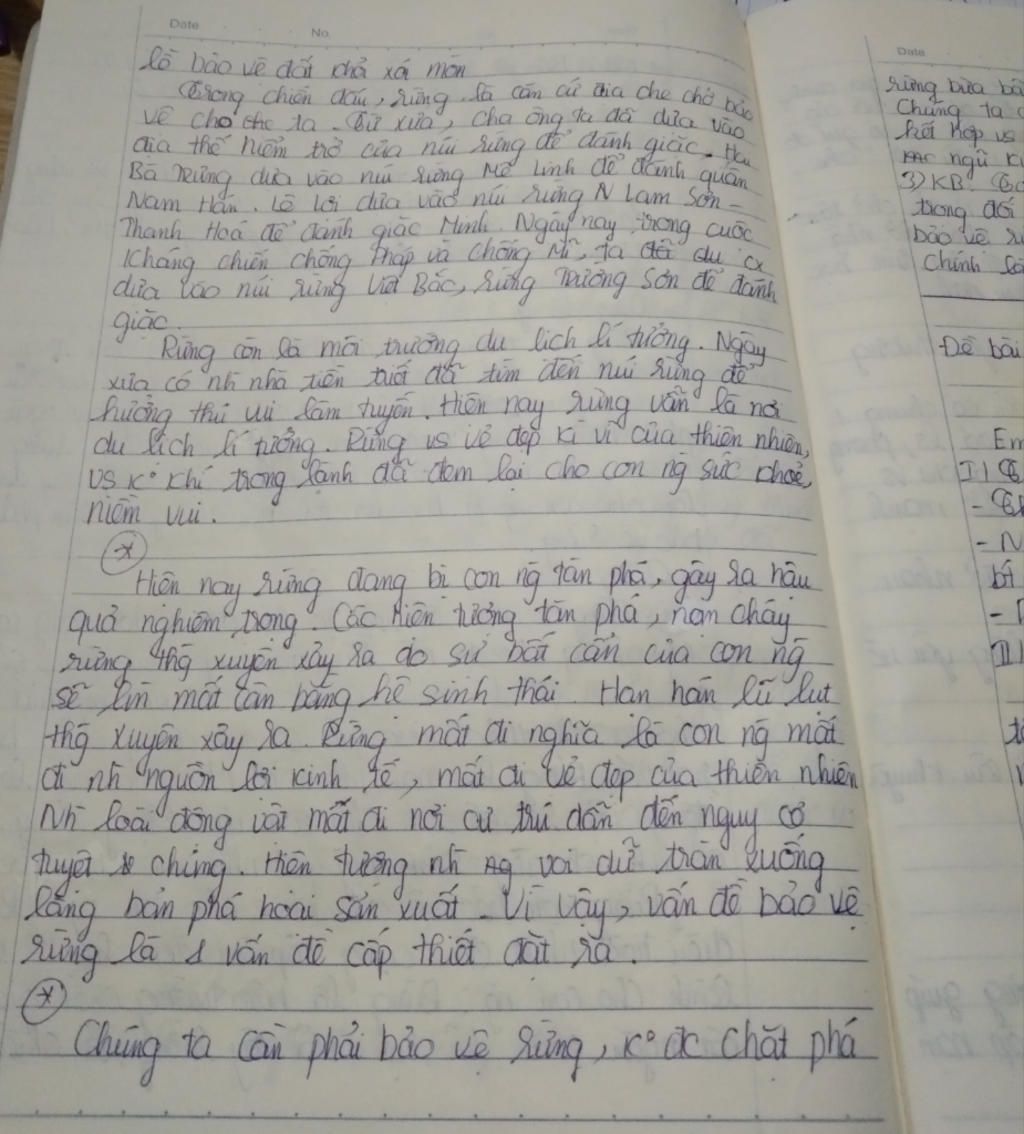 Date No.
lỗ bảo vệ đất khỏi xói mòn
Trong chiến đấu, rừng là căn cứ địa che chở bảo
vệ cho ta. Từ xưa, cha ông ta đã dựa vào
địa thế hiểm trở của núi rừng để đánh giặc. Hai
Bà Trưng dựa vào núi rừng Mê Linh để đánh quân
Nam Hán. Lê Lợi dựa vào núi rừng N Lam Sơn -
Thanh Hoá để đánh giặc Minh. Ngày nay, trong cuộc
kháng chiến chống Pháp và chống Mĩ, ta đã
dựa vào núi rừng Việt Bắc, rừng Trường Sơn để đánh
giặc.
Rừng còn là môi trường du lịch lí tưởng. Ngày
xưa có nh~ nhà tiền tuổi đã tìm đến núi rừng để
hưởng thú vui lâm tuyền. Hiện nay rừng vẫn là nơi
du lịch lí tưởng. Rừng vs vẻ đẹp kì vĩ của thiên nhiên,
vs k° khí trong lành đã đem lại cho con ng sức khoẻ,
niềm vui.
*
Hiện nay rừng đang bị con ng tàn phá, gây ra hậu
quả nghiêm trọng. Các hiện tượng tàn phá, nạn cháy
rừng thg xuyên xảy ra do sự bất cẩn của con ng
sẽ làm mất cân bằng hệ sinh thái. Hạn hán lũ lụt
thg xuyên xảy ra. Rừng mất đi nghĩa là con ng mất
đi nh~ nguồn lợi kinh tế, mất đi vẻ đẹp của thiên nhiên
Nh~ loài động vật mất đi nơi cư trú dẫn đến nguy cơ
tuyệt chủng. Hiện tượng nh~ voi dữ tràn xuống
làng bản phá hoại sản xuất. Vì vậy, vấn đề bảo vệ
rừng là 1 vấn đề cấp thiết đặt ra.
*
Chúng ta cần phải bảo vệ rừng, k° đc chặt phá
Date
rừng bừa bã
Chúng ta c
kết hợp vs
ngũ k
3) KB:
trong đối
bảo vệ r
chính là
Đề bài
Em
I|
-
- N
bị
-
II|